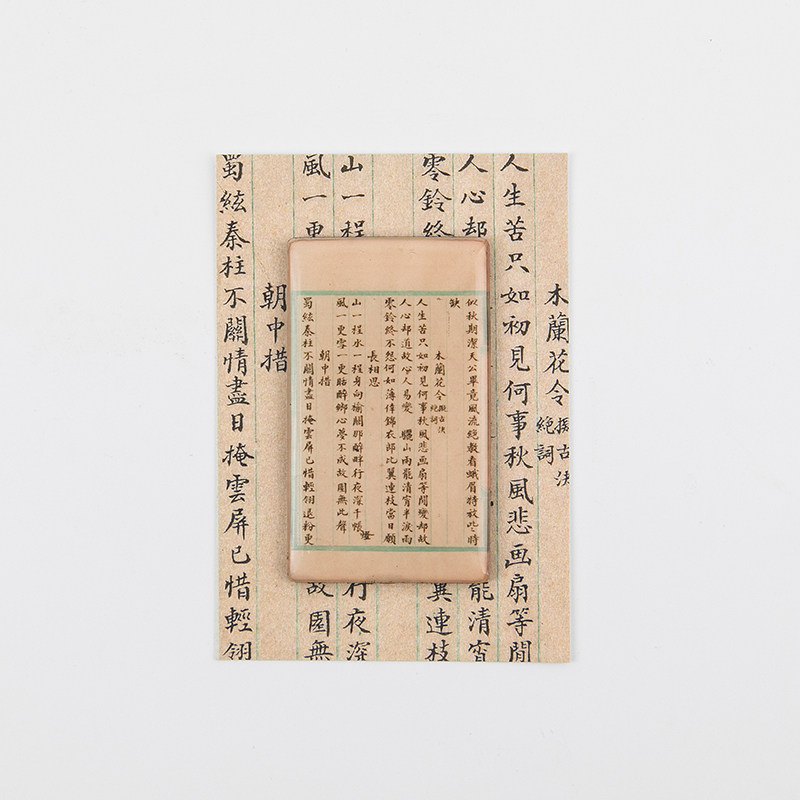 木蘭花令擬古決
絕詞
人生若只如初見何事秋風悲画扇等閒
人心却
能清宵
零鈴終
翼連枝
山一程
行夜深
風一更
故園無
朝中措
蜀絃秦柱不關情盡日掩雲屏已惜輕翎
似秋期潔天公畢竟風流絕敎看蛾眉特放些時
缺
木蘭花令擬古決
絕詞
人生若只如初見何事秋風悲画扇等閒變却故
人心却道故心人易變 驪山雨罷清宵半淚雨
零鈴終不怨何如薄倖錦衣郎比翼連枝當日願
長相思
山一程水一程身向榆關那畔行夜深千帳燈
風一更雪一更聒碎鄉心夢不成故園無此聲
朝中措
蜀絃秦柱不關情盡日掩雲屏已惜輕翎退粉更